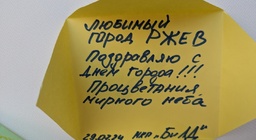 ЛЮБИМЫЙ
ГОРОД РЖЕВ
Поздровляю с
Днём города!!!
Процветания
мирного неба
29.07.24 "Би ЛД"